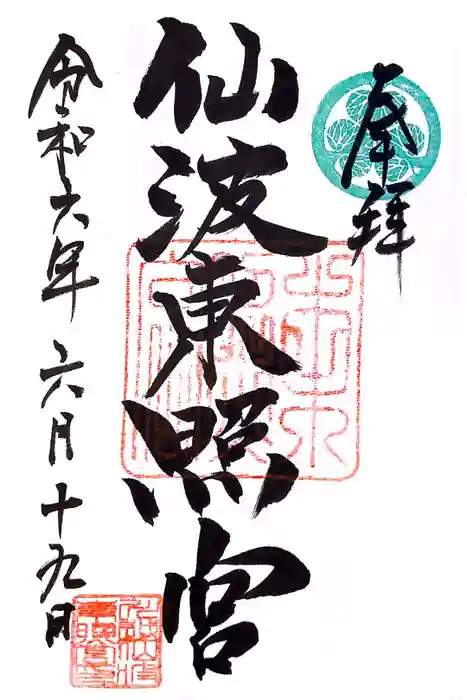 奉拝
仙波東照宮
令和六年 六月十九日